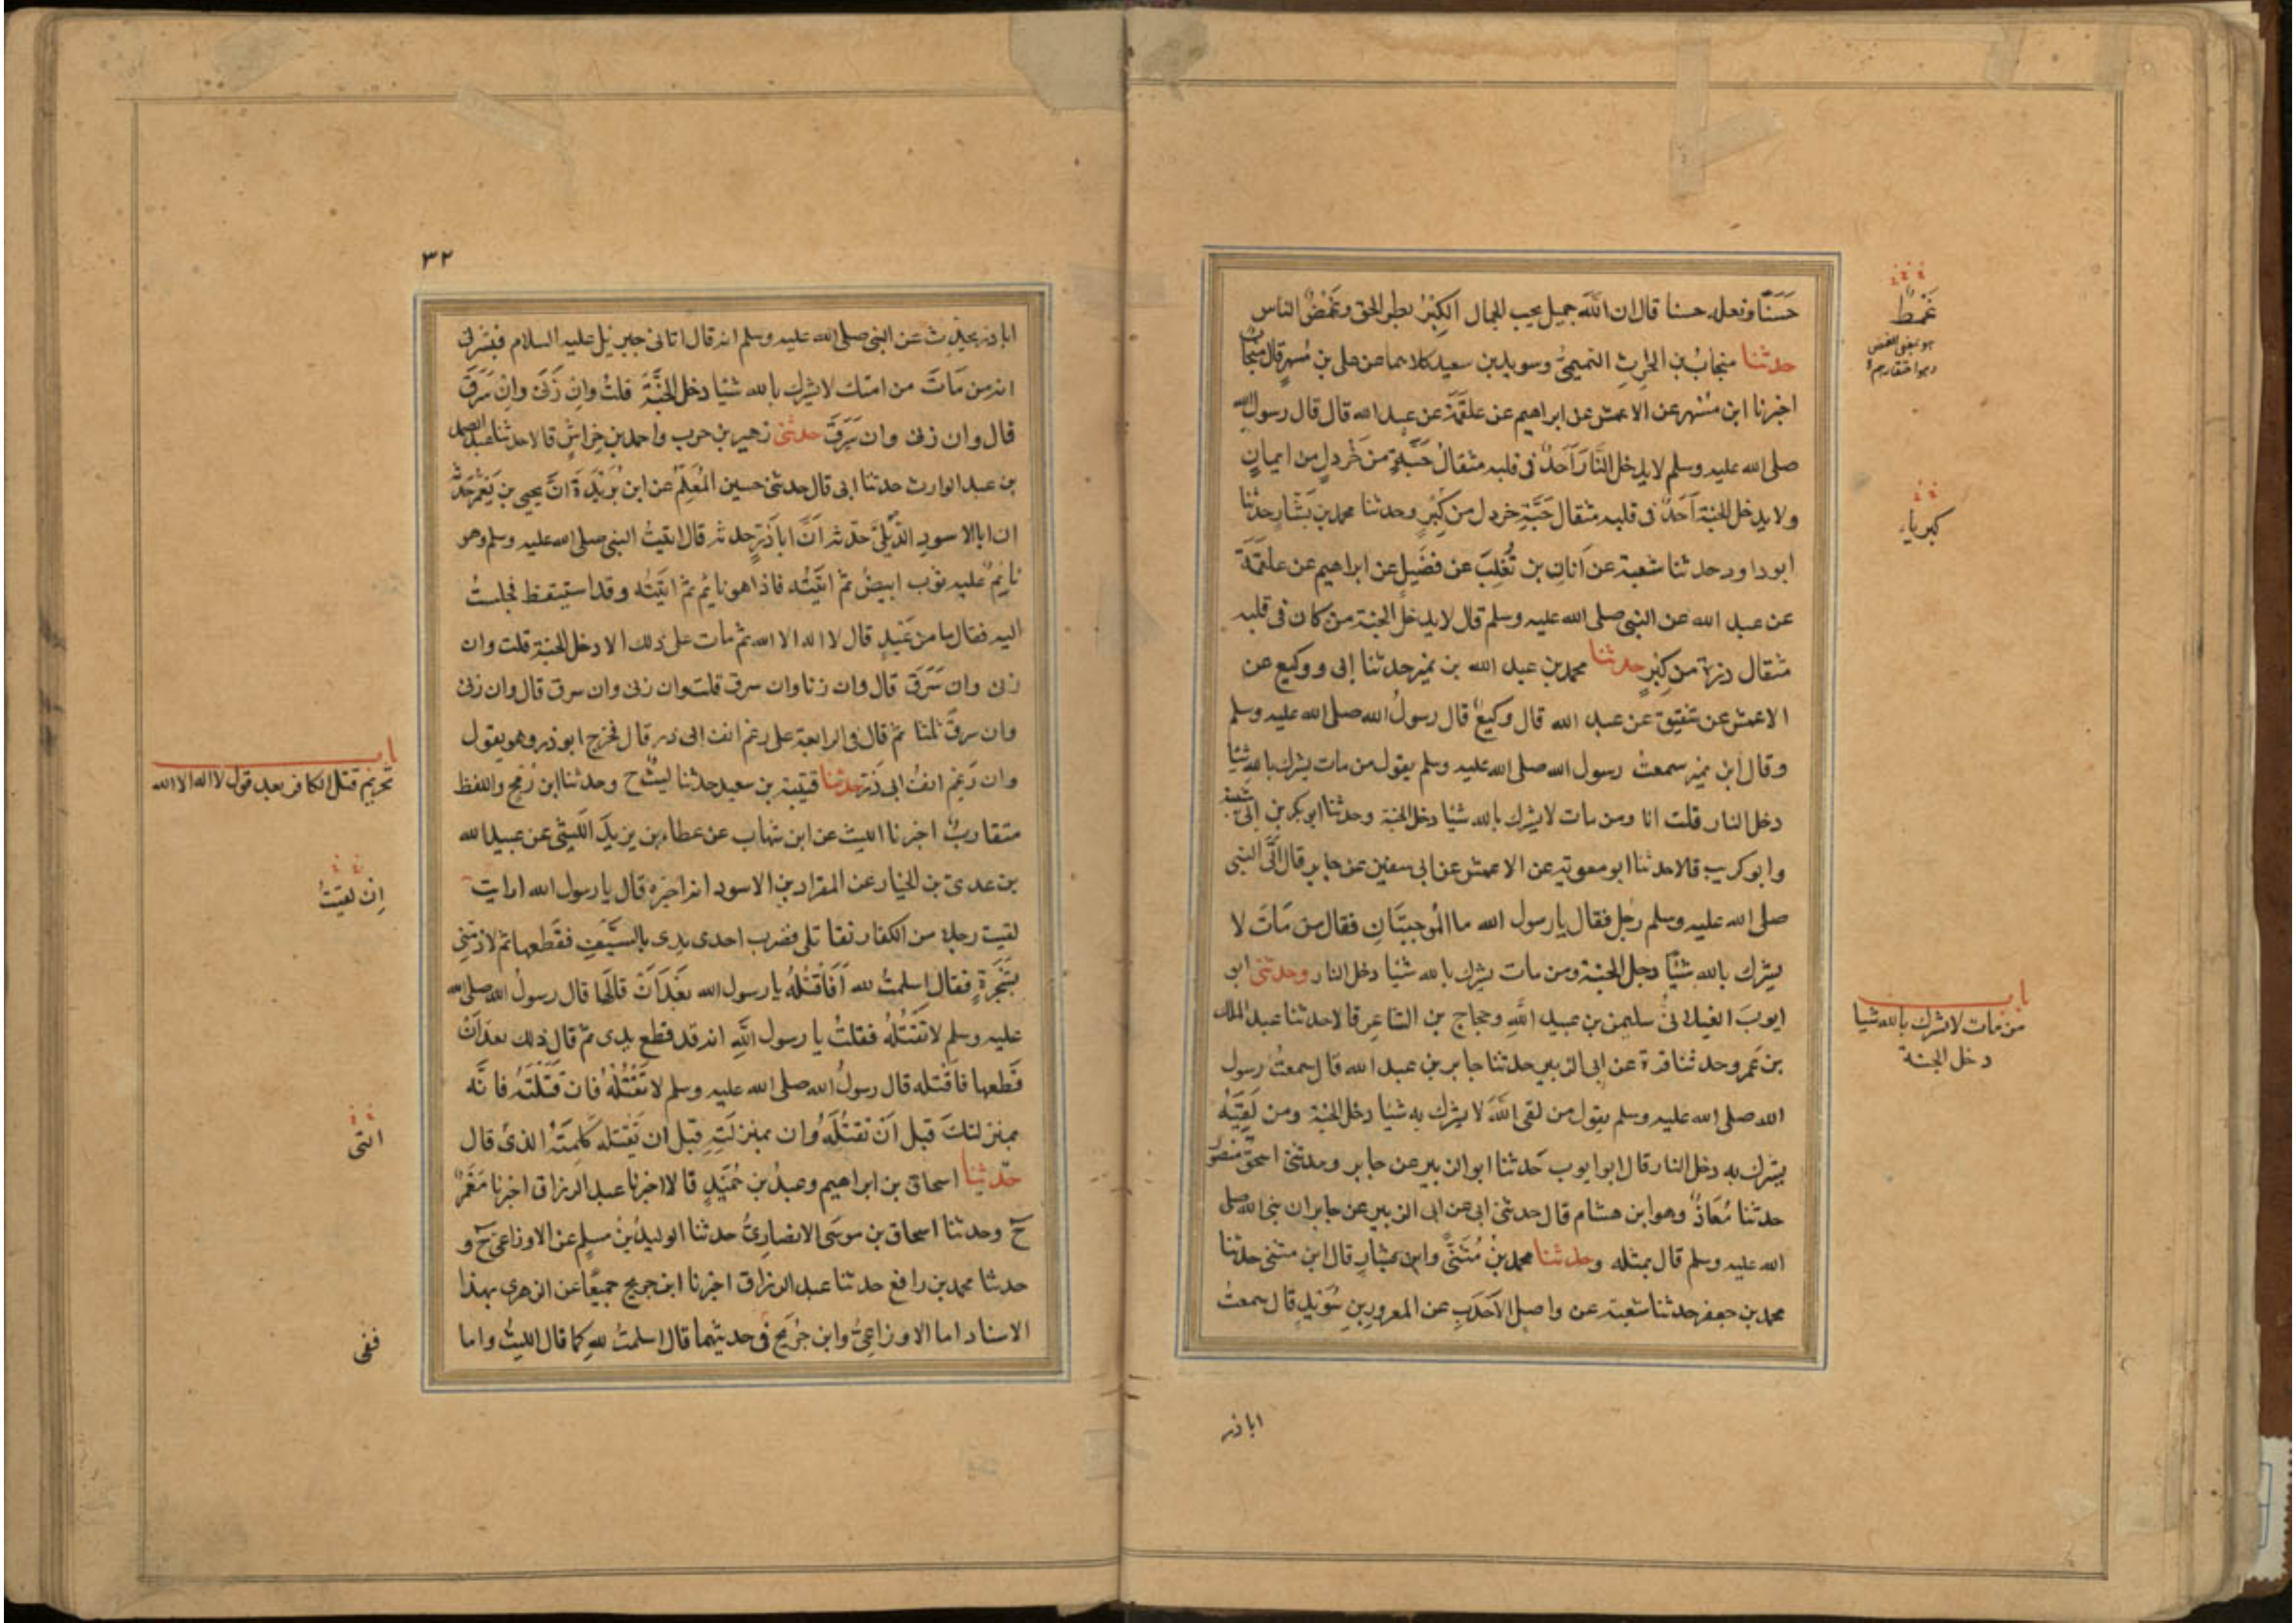 حَسَنًا ونعله حسنا قال ان اللّه جميل يحب الجمال الكِبْرُ بطر الحق وغَمْضُ الناس
حدثنا منجابُ بن الحرثِ التميميُّ وسويد بن سعيد كلاهما عن على بن مُسهرٍ قال منجابٌ
اخبرنا ابن مُسْهر عن الاعمش عن ابراهيم عن علقَمَة عن عبد الله قال قال رسول الله
صلى الله عليه وسلم لا يدخل النَّارَ اَحَدٌ فى قلبه مثقالُ حَبَّةٍ من خَرْدلٍ من ايمانٍ
ولا يدخل الجنة اَحَدٌ فى قلبه مثقال حَبَّةِ خردل من كِبْرٍ وحدثنا محمد بن بَشَّارٍ حدثنا
ابو داود حدثنا شعبة عن اَبَانِ بن تُغْلِبَ عن فضَيلٍ عن ابراهيم عن علقمَةَ
عن عبد الله عن النبى صلى الله عليه وسلم قال لا يدخل الجنة من كان فى قلبه
مثقال ذرة من كِبْرٍ حدثنا محمد بن عبد الله بن نمير حدثنا ابى ووكيع عن
الاعمش عن شقيق عن عبد الله قال وكيعٌ قال رسولُ الله صلى الله عليه وسلم
وقال ابن نمير سمعتُ رسول الله صلى الله عليه وسلم يقول من مات يشرك بالله شيًا
دخل النار قلت انا ومن مات لا يشرك بالله شيًا دخل الجنة وحدثنا ابو بكر بن ابى شيبة
وابو كريب قالا حدثنا ابو معوية عن الاعمش عن ابى سفين عن جابر قال اَتَى النبى
صلى الله عليه وسلم رَجل فقال يا رسول الله ما الْمُوجبتَانِ فقال من مَاتَ لا
يشرك بالله شيًا دخل الجنة ومن مات يشرك بالله شيًا دخل النار وحدثنى ابو
ايوبَ الغيلانىُّ سليمن بن عبيد اللّهِ وحجاج بن الشاعِرِ قالا حدثنا عبد الملك
بن عَمرو حدثنا قرة عن ابى الزبير حدثنا جابر بن عبد الله قال سمعتُ رسول
الله صلى الله عليه وسلم يقول من لقى اللّهَ لا يشرك به شيًا دخل الجنة ومن لَقِيَهُ
يشرك به دخل النار قال ابو ايوب حَدثنا ابو الزبير عن جابر وحدثنى اسحق منصور
حدثنا مُعَاذٌ وهو ابن هشام قال حدثنى ابى عن ابى الزبير عن جابر ان نبى الله صلى
الله عليه وسلم قال بمثله وحدثنا محمد بنُ مُثَنًّى وابن بشارٍ قال ابن مثنى حدثنا
محمد بن جعفر حدثنا شعبة عن واصلِ الاَحْدَبِ عن المعرورِ بنِ سُوَيْدٍ قال سمعتُ
غَمْطٌ
هو بمعنى الغمض
وهو احتقارهم
كبرياء
باب
من مات لا يشرك بالله شيا
دخل الجنة
اباذر
٣٢
اباذر يحدث عن النبى صلى الله عليه وسلم انه قال اتانى جبريل عليه السلام فبشرنى
انه من مَاتَ من امتك لا يشرك بالله شيًا دخل الجنَّةَ قلتُ وانِ زَنَى وانِ سَرَقَ
قال وان زنى وان سَرَقَ حدثنى زهير بن حرب واحمد بن خِراشٍ قالا حدثنا عبد الصمد
بن عبد الوارث حدثنا ابى قال حدثنى حسين المُعَلِّمُ عن ابن بُرَيْدَةَ انَّ يحيى بن يَعْمَرَ حَدَّثه
ان ابا الاسودِ الدِّيلىَّ حدّثه اَنَّ اباذَرٍّ حدثه قال اتيتُ النبى صلى الله عليه وسلم وهو
نايِمٌ عليه ثوب ابيضُ ثم اتيتُه فاذا هو نايُم ثم اتيتُه وقد استيقظ فجلستُ
اليه فقال ما من عَبْدٍ قال لا اله الا الله ثم مات على ذلك الا دخل الجنة قلت وان
زنى وان سَرَقَ قال وان زنا وان سرق قلت وان زنى وان سرق قال وان زنى
وان سرق ثلثا ثم قال فى الرابعة على رغم انف ابى ذر قال فخرج ابو ذر وهو يقول
وان رَغِمَ انفُ ابى ذَرٍّ حدثنا قتيبة بن سعيد حدثنا ليثٌ ح وحدثنا ابن رُمْحٍ واللفظ
متقاربٌ اخبرنا الليث عن ابن شهاب عن عطاء بن يزيدَ اللّيثى عن عبيد الله
بن عدىِّ بن الخيار عن المقداد بن الاسود انه اخبره قال يا رسول الله ارايت
لقيت رجلا من الكفار فقاتلنى فضرب احدى يدى بالسَّيْفِ فقطعها ثم لاذ منى
بشَجَرَةٍ فقال اسلمتُ لله اَفَاَقْتُلُهُ يا رسول الله بَعْدَ اَنْ قالَها قال رسولُ اللّه صلى الله
عليه وسلم لا تَقْتُلْهُ فقلتُ يا رسول اللّهِ انه قد قطع يدى ثم قال ذلك بعد اَنْ
قَطعها فاَقتله قال رسولُ الله صلى الله عليه وسلم لا تَقْتُلْهُ فان قَتَلْتَهُ فانَّه
بمنزلتكَ قبل اَنْ تَقتُلَهُ وان بمنزلَتِهِ قبل ان تَقتله كلِمَتَهُ الذى قال
حدّثنا اسحاق بن ابراهيم وعبدُ بن حُمَيْدٍ قالا اخبرنا عبد الرزاق اخبرنا مَعْمَرٌ
ح وحدثنا اسحاق بن موسَى الانصارِىُّ حدثنا الوليدُ بنُ مسلم عن الاوزاعى ح و
حدثنا محمد بن رافع حدثنا عبد الرزاق اخبرنا ابن جريج جميعًا عن الزهرى بهذا
الاسناد اما الاوزاعِىُّ وابن جُرَيْجٍ فى حديثهما قال اسلمتُ للهِ كما قال الليثُ واما
باب
تحريم قتل الكافر بعد قول لا اله الا الله
اِن لقيتُ
التى
ففى